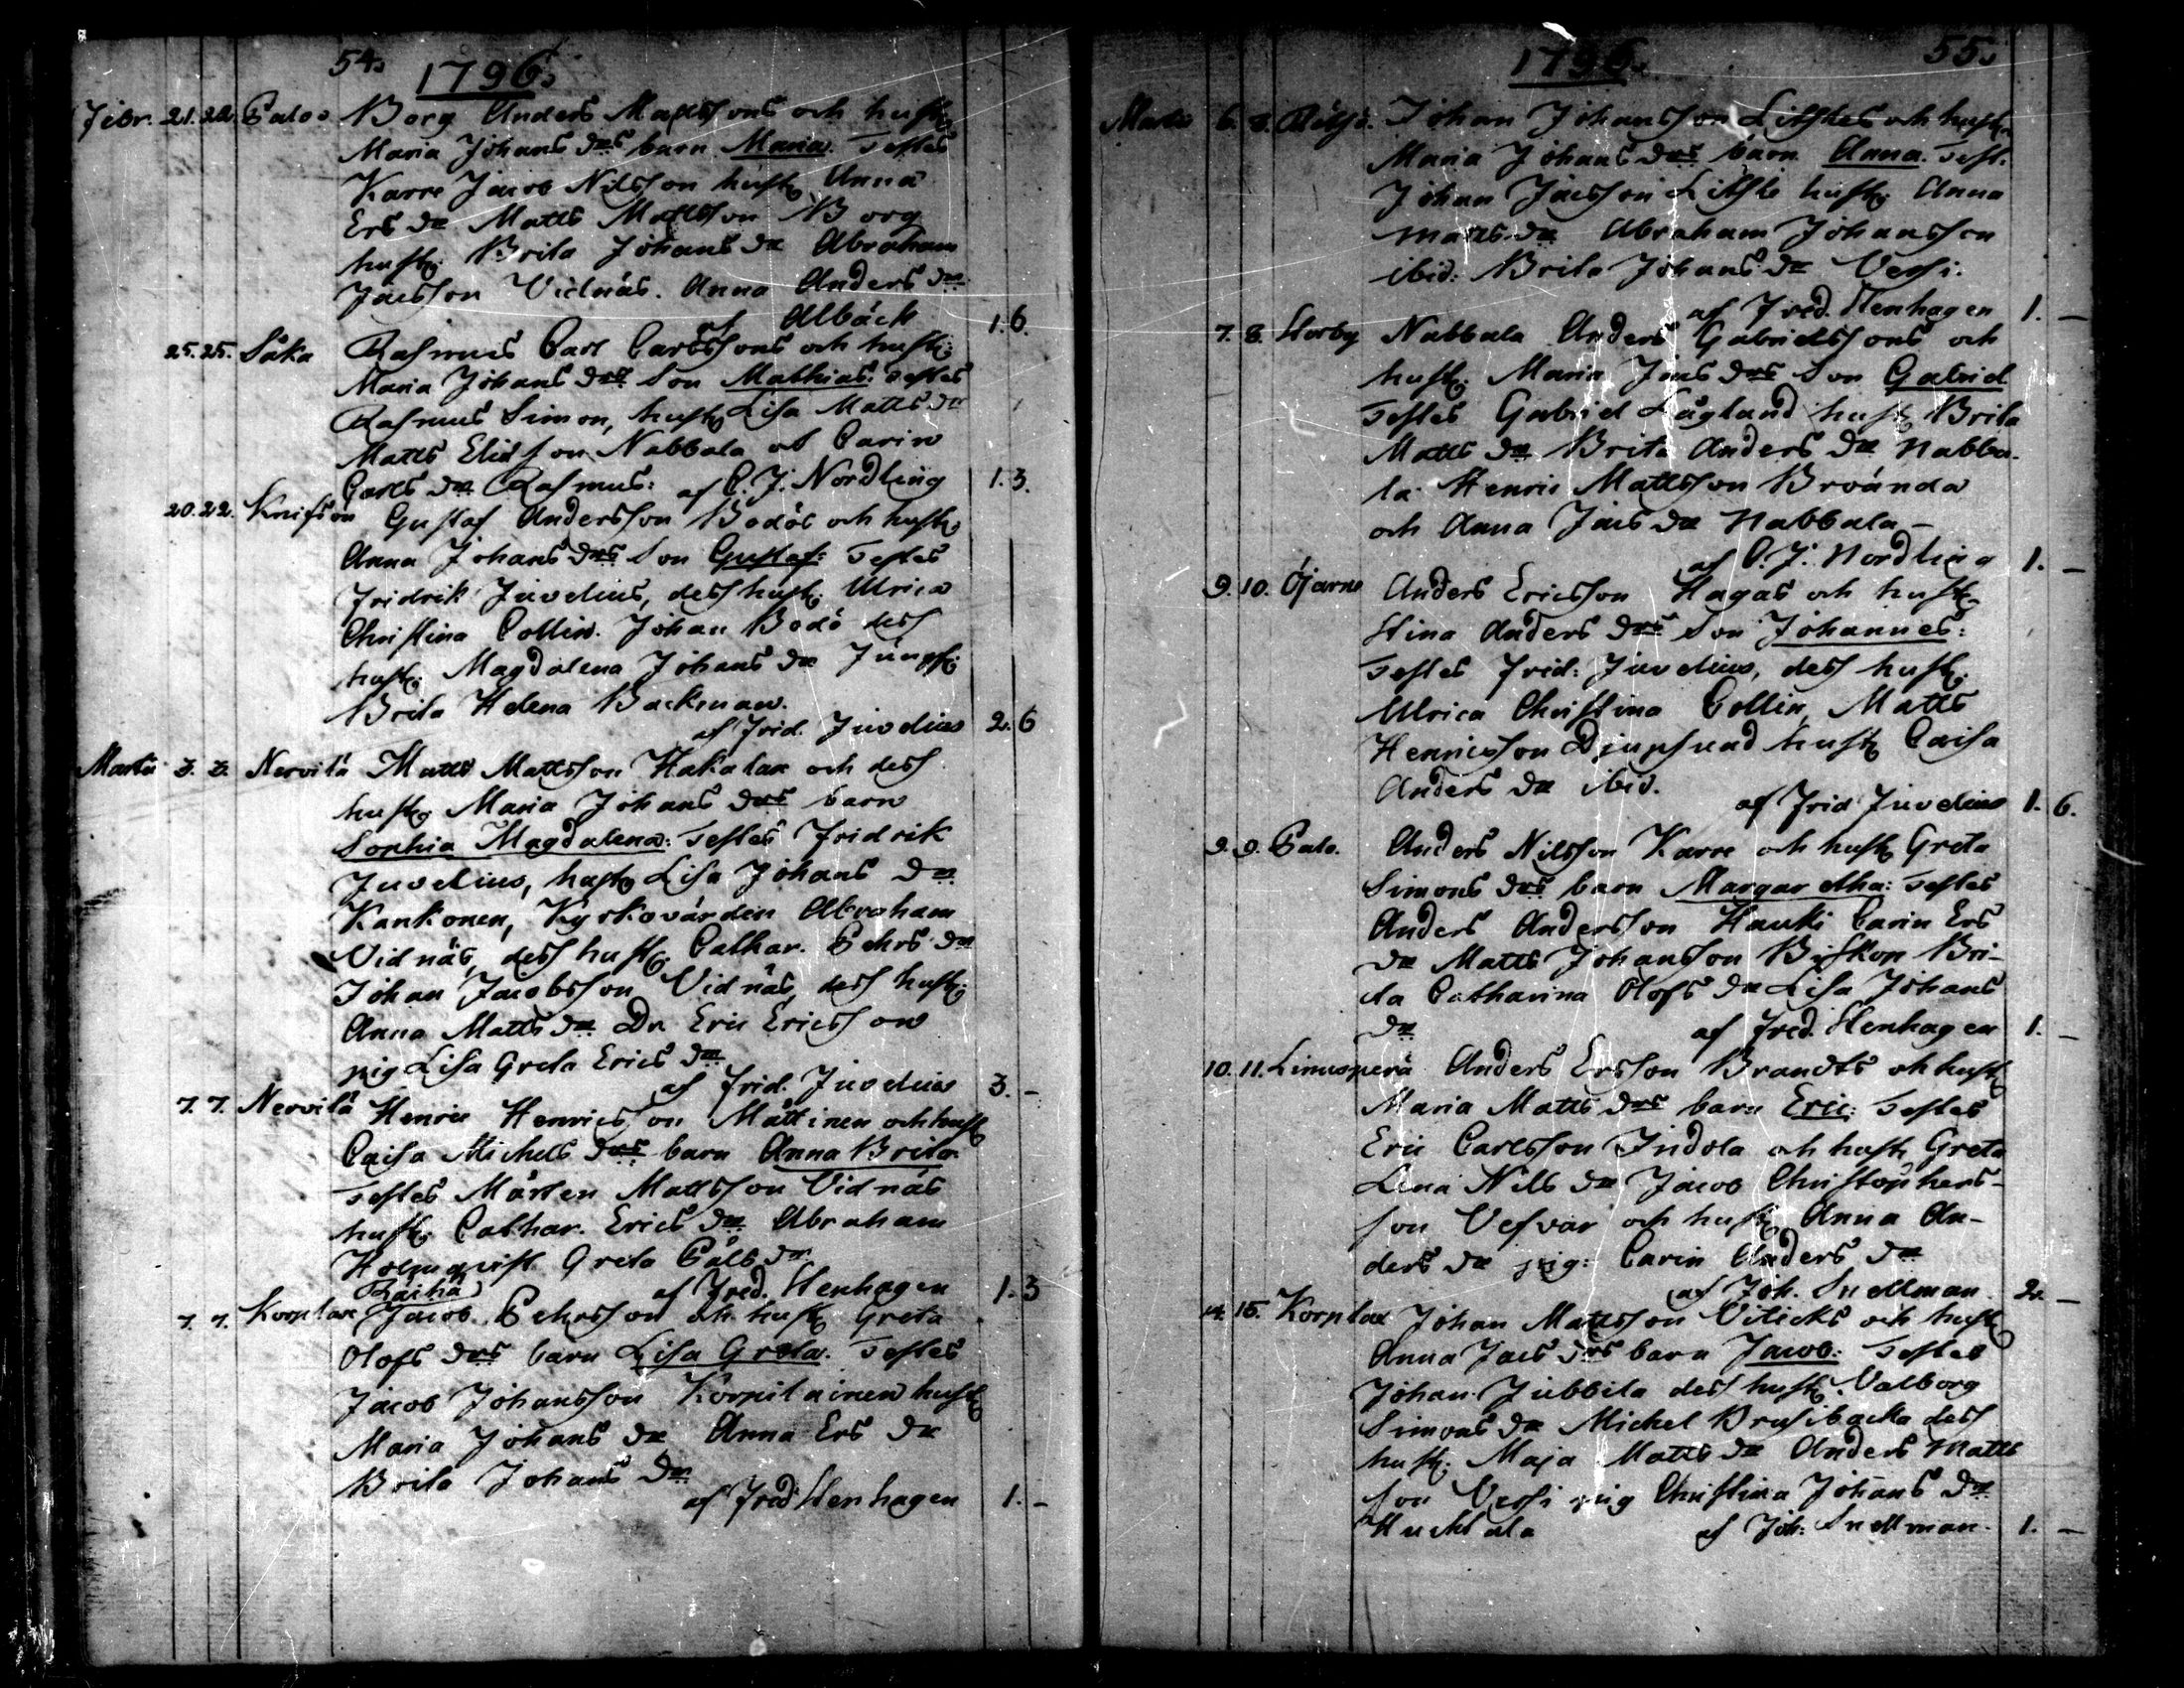 54.
1796.
Febr. 21. 22. Palo. Borg Anders Mattssons och hust:
Maria Johans drs barn Maria. Testes
Karre Jacob Nilsson hust: Anna
Ers dr Matts Mattsson Borg
hust: Brita Johans dr Abraham
Jacsson Vidnäs. Anna Anders dr
Albäck 1. 6.
25. 25. Såka Rasmus Carl Carlssons och hust:
Maria Johans drs Son Mathias: Testes
Rasmus Simon, hust: Lisa Matts dr
Matts Elisson Nabbala ock Carin
Carls dr Rasmus: af C. J. Nordling 1. 3.
20. 22. Knifsön Gustaf Andersson Bodös och hust:
Anna Johans drs Son Gustaf: Testes
Fridrik Juvelius, dess hust: Ulrica
Christina Collin. Johan Bodö dess
hust: Magdalena Johans dr Jungf:
Brita Helena Backman.
af Frid. Juvelius 2. 6
Martii 3. 3. Nervilä Matts Mattsson Hakalax och dess
hust: Maria Johans drs barn
Sophia Magdalena: Testes Fridrik
Juvelius, hust: Lisa Johans dr
Kankonen, Kyrkovärden Abraham
Vidnäs, dess hust: Cathar. Pehrs dr
Johan Jacobsson Vidnäs, dess hust:
Anna Matts dr Dr. Eric Ericsson
pig Lisa Greta Erics dr
af Frid. Juvelius 3. –
7. 7. Nervilä Henric Henricsson Mattinen och hust:
Caisa Michels drs barn Anna Brita
Testes Mårten Mattsson Vidnäs
hust: Cathar. Erics dr Abraham
Holmqvist Greta Påls dr
af Fred. Stenhagen 1. 3
Räihä
7. 7. Korplax Jacob Pehrsson och hust: Greta
Olofs drs barn Lisa Greta. Testes
Jacob Johansson Korpilainen hust:
Maria Johans dr Anna Ers dr
Brita Johans dr
af Fred: Stenhagen 1. –
1796.
55.
Martii 6. 8. Johan Johansson Litskes och hust:
Maria Johans drs barn Anna. Test.
Johan Jacsson Litske hust: Anna
Matts dr Abraham Johansson
ibid: Brita Johans dr Vessi.
af Fred. Stenhagen 1. –
7. 8. Storby Nabbala Anders Gabrielssons och
hust: Maria Jacs drs Son Gabriel
Testes Gabriel Lågland hust: Brita
Matts dr Brita Anders dr Nabba-
la Henric Mattsson Broända
och Anna Jacs dr Nabbala –
af C. J. Nordling 1. –
9. 10. Öjarne Anders Ericsson Hagas och hust:
Stina Anders drs Son Johannes:
Testes Frid: Juvelius, dess hust:
Ulrica Christina Collin, Matts
Henricsson Djupsund hust: Caisa
Anders dr ibid.
af Frid Juvelius 1. 6.
9. 9. Palo. Anders Nilsson Karre och hust: Greta
Simons drs barn Margaretha: Testes
Anders Andersson Hauki Carin Ers
dr Matts Johansson Biskop Bri-
ta Catharina Olofs dr Lisa Johans
dr af Fred. Stenhagen 1. –
10. 11. Linusperä Anders Ersson Brandts och hust:
Maria Matts drs barn Eric: Testes
Eric Carlsson Indola och hust: Greta
Lena Nils dr Jacob Christophers-
son Vefvar och hust: Anna An-
ders dr pig: Carin Anders dr
af Joh. Snellman. 2. –
14. 15. Korplax Johan Mattsson Vilicks och hust:
Anna Jacs drs barn Jacob: Testes
Johan Jubbila dess hust: Valborg
Simons dr Michel Brusibacka dess
hust: Maja Matts dr Anders Matts
son Vessi pig Christina Johans dr
Huchtala af Joh: Snellman. 1. –